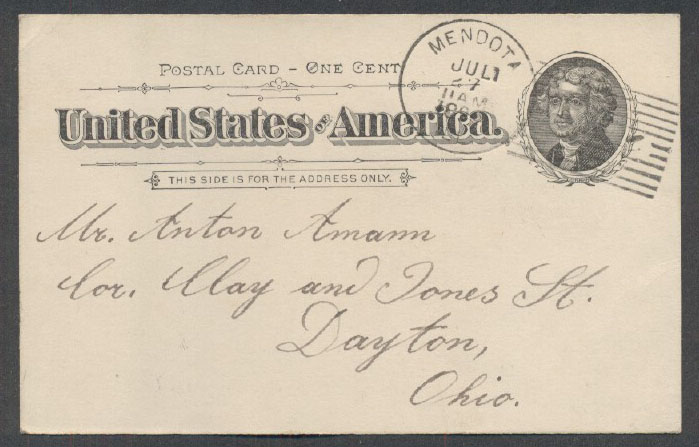 POSTAL CARD – ONE CENT
United States OF America.
THIS SIDE IS FOR THE ADDRESS ONLY.
MENDOTA
JUL
11AM
Mr. Anton Amann
Cor. Clay and Jones St.
Dayton,
Ohio.